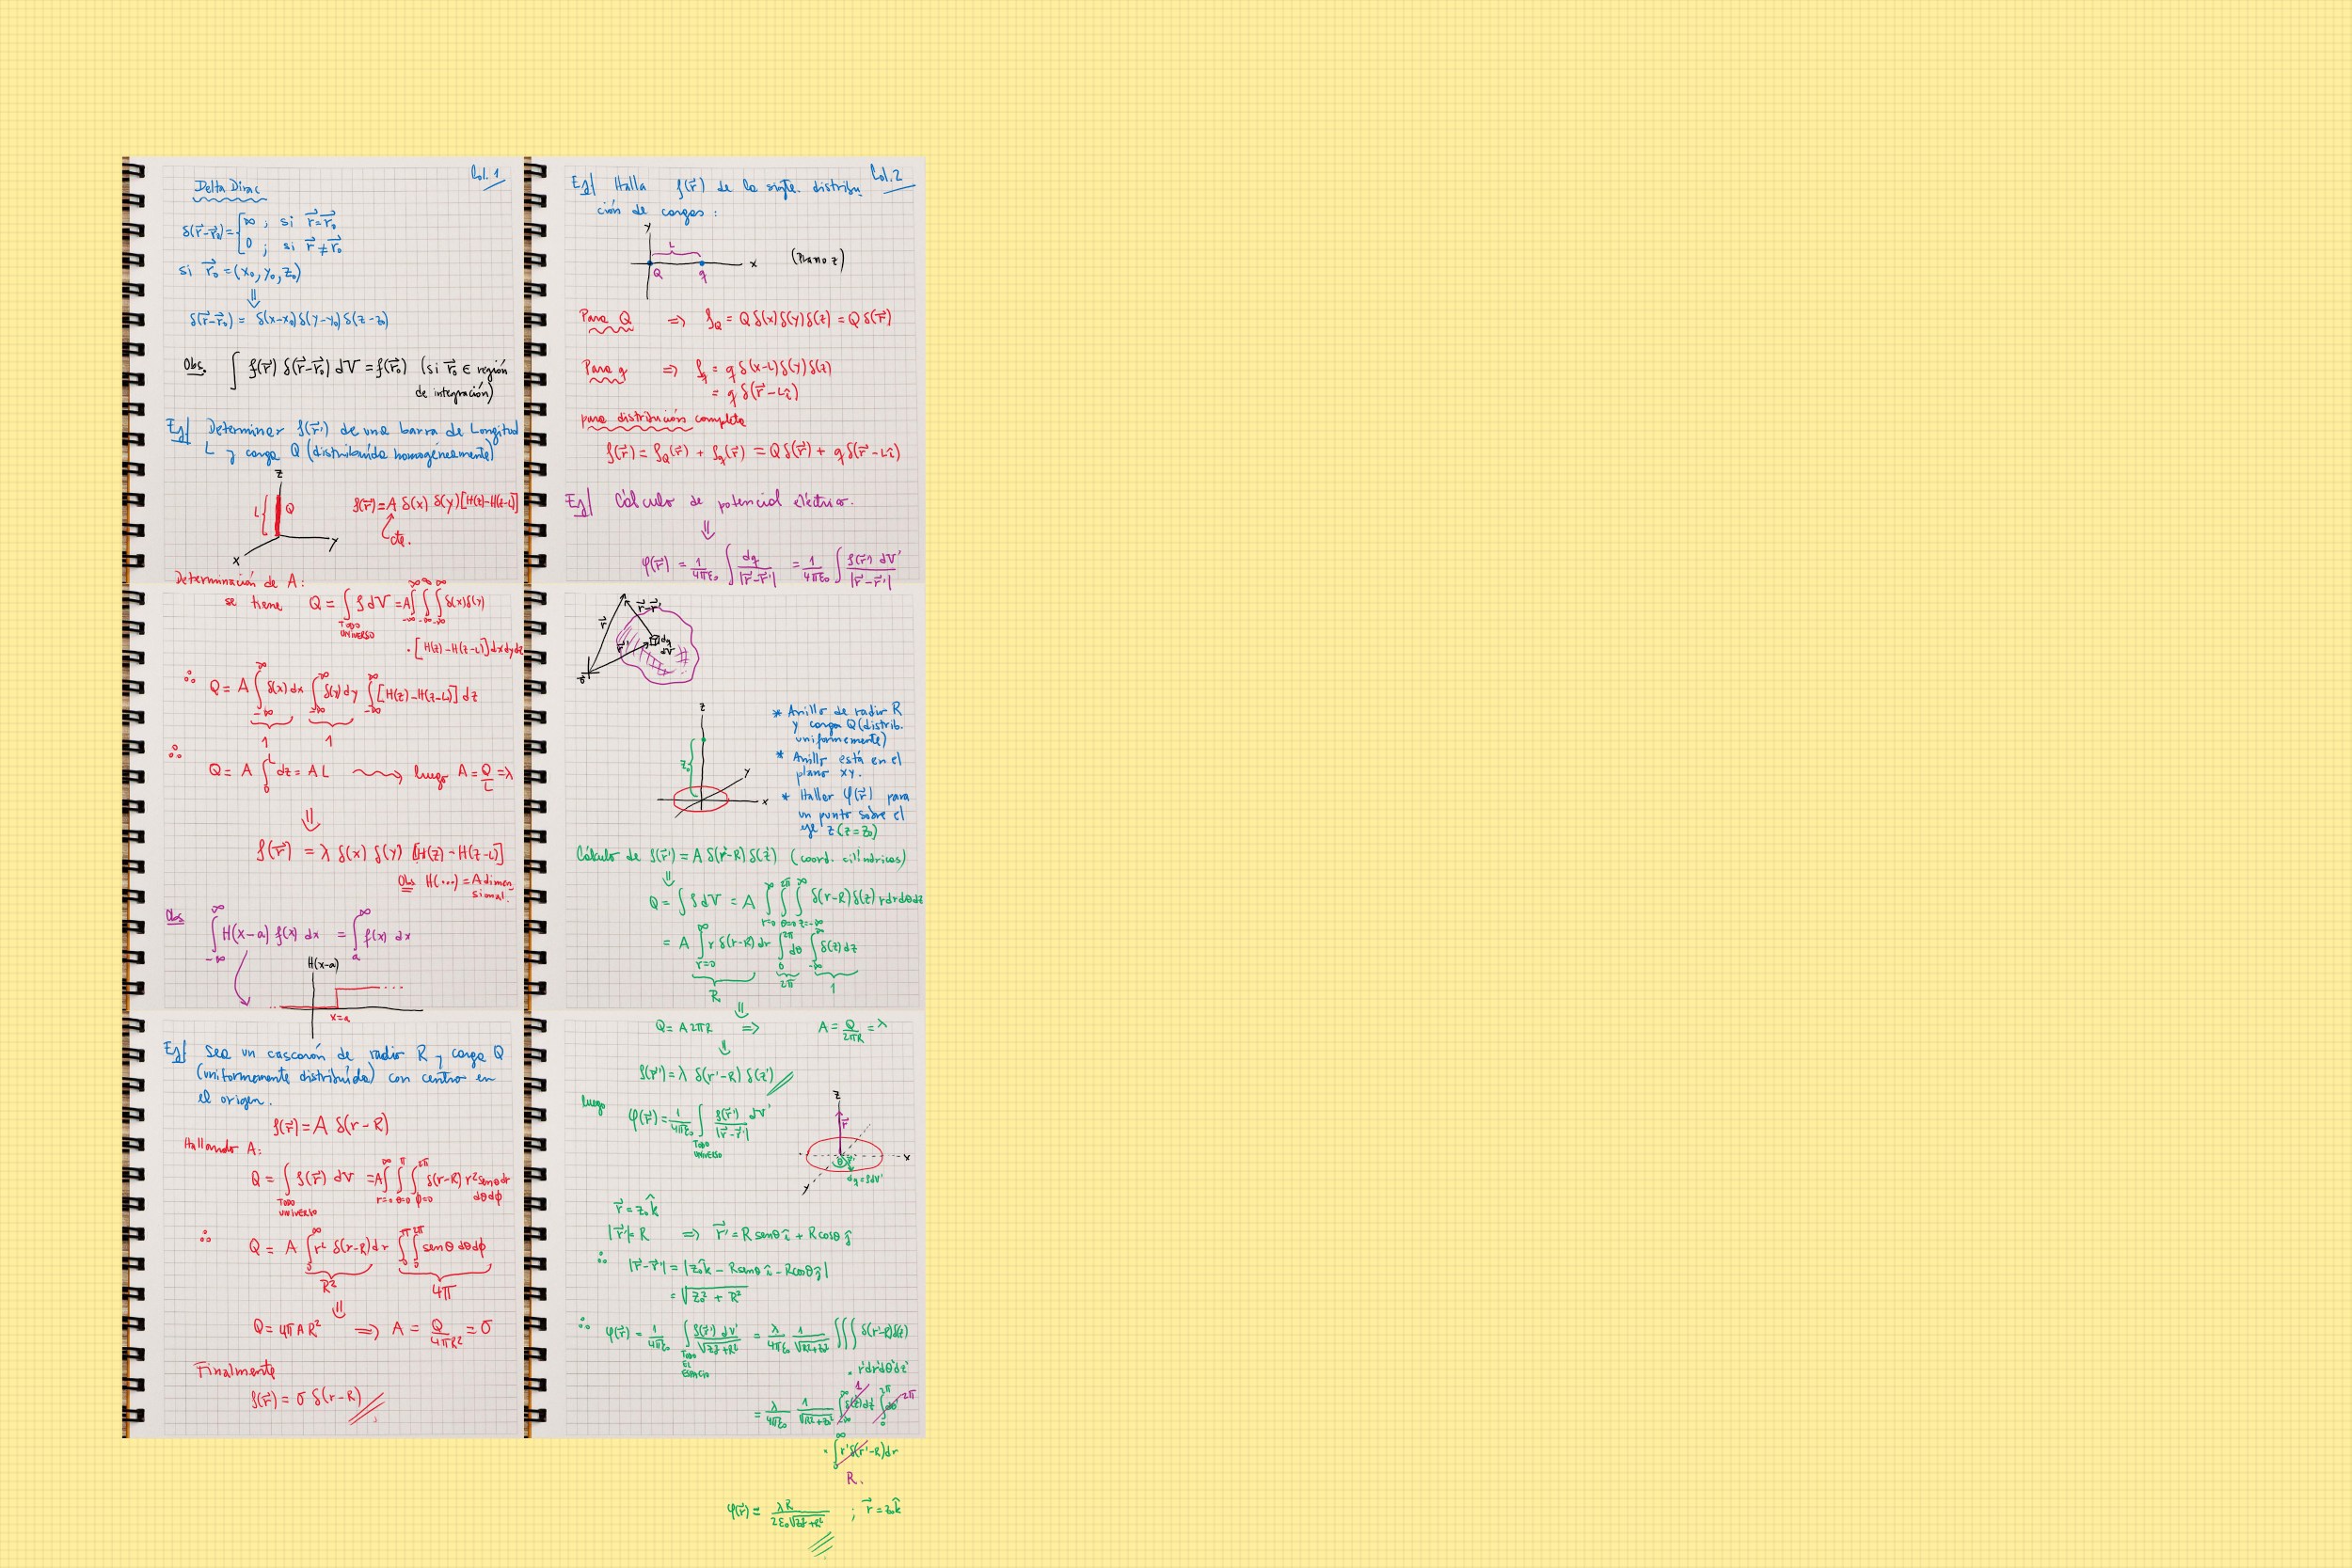 Col. 1
Delta Dirac
δ(r⃗-r⃗₀) = { ∞ ; si r⃗=r⃗₀
0 ; si r⃗≠r⃗₀
si r⃗₀ = (x₀, y₀, z₀)
⇓
δ(r⃗-r⃗₀) = δ(x-x₀) δ(y-y₀) δ(z-z₀)
Obs. ∫ f(r⃗) δ(r⃗-r⃗₀) dV = f(r⃗₀) (si r⃗₀ ∈ región
de integración)
Ej| Determinar ρ(r⃗) de una barra de Longitud
L y carga Q (distribuída homogéneamente)
z
L Q
x y
ρ(r⃗) = A δ(x) δ(y) [H(z)-H(z-L)]
cte.
Determinación de A:
se tiene Q = ∫ ρ dV = A ∫_{-∞}^{∞} ∫_{-∞}^{∞} ∫_{-∞}^{∞} δ(x) δ(y)
TODO
UNIVERSO
· [H(z)-H(z-L)] dxdydz
∴ Q = A ∫_{-∞}^{∞} δ(x) dx ∫_{-∞}^{∞} δ(y) dy ∫_{-∞}^{∞} [H(z)-H(z-L)] dz
1 1
∴ Q = A ∫_0^L dz = AL ⟿ luego A = Q/L = λ
⇓
ρ(r⃗) = λ δ(x) δ(y) [H(z) - H(z-L)]
Obs H(...) = Adimen
sional.
Obs ∫_{-∞}^{∞} H(x-a) f(x) dx = ∫_a^{∞} f(x) dx
H(x-a)
x=a
Ej| Sea un cascarón de radio R y carga Q
(uniformemente distribuída) con centro en
el origen.
ρ(r⃗) = A δ(r-R)
Hallando A:
Q = ∫ ρ(r⃗) dV = A ∫_{r=0}^{∞} ∫_{θ=0}^{π} ∫_{φ=0}^{2π} δ(r-R) r² senθ dr
dθdφ
TODO
UNIVERSO
∴ Q = A ∫_0^{∞} r² δ(r-R) dr ∫_0^{π} ∫_0^{2π} senθ dθdφ
R² 4π
⇓
Q = 4πAR² ⇒ A = Q/4πR² = σ
Finalmente
ρ(r⃗) = σ δ(r-R)
Col. 2
Ej| Halla ρ(r⃗) de la sigte. distribu
ción de cargas:
y
L
Q q x (Plano z)
Para Q ⇒ ρ_Q = Q δ(x) δ(y) δ(z) = Q δ(r⃗)
Para q ⇒ ρ_q = q δ(x-L) δ(y) δ(z)
= q δ(r⃗-Lî)
para distribución completa
ρ(r⃗) = ρ_Q(r⃗) + ρ_q(r⃗) = Q δ(r⃗) + q δ(r⃗-Lî)
Ej| Cálculo de potencial eléctrico.
⇓
φ(r⃗) = 1/4πε₀ ∫ dq/|r⃗-r⃗'| = 1/4πε₀ ∫ ρ(r⃗') dV'/|r⃗-r⃗'|
r⃗-r⃗'
r⃗
dq
dV'
r⃗'
z
z₀
y
x
* Anillo de radio R
y carga Q (distrib.
uniformemente)
* Anillo está en el
plano xy.
* Haller φ(r⃗) para
un punto sobre el
eje z (z=z₀)
Cálculo de ρ(r⃗') = A δ(r'-R) δ(z') (coord. cilíndricas)
⇓
Q = ∫ ρ dV = A ∫_{r=0}^{∞} ∫_{θ=0}^{2π} ∫_{z=-∞}^{∞} δ(r-R) δ(z) rdrdθdz
= A ∫_{r=0}^{∞} r δ(r-R) dr ∫_0^{2π} dθ ∫_{-∞}^{∞} δ(z) dz
R 2π 1
⇓
Q = A2πR ⇒ A = Q/2πR = λ
⇓
ρ(r⃗') = λ δ(r'-R) δ(z')
luego φ(r⃗) = 1/4πε₀ ∫ ρ(r⃗')/|r⃗-r⃗'| dV'
TODO
UNIVERSO
z
r⃗
θ r⃗'
x
dq=ρdV'
y
r⃗ = z₀k̂
|r⃗'| = R ⇒ r⃗' = R senθ î + R cosθ ĵ
∴ |r⃗-r⃗'| = |z₀k̂ - Rsenθ î - Rcosθ ĵ|
= √(z₀² + R²)
∴ φ(r⃗) = 1/4πε₀ ∫ ρ(r⃗') dV'/√(z₀²+R²) = λ/4πε₀ 1/√(R²+z₀²) ∫∫∫ δ(r'-R) δ(z')
TODO
EL
ESPACIO
· r'dr'dθ'dz'
= λ/4πε₀ 1/√(R²+z₀²) ∫_{-∞}^{∞} δ(z') dz' 1 ∫_0^{2π} dθ' 2π
· ∫_0^{∞} r' δ(r'-R) dr
R.
φ(r⃗) = λR/2ε₀√(z₀²+R²) ; r⃗ = z₀k̂